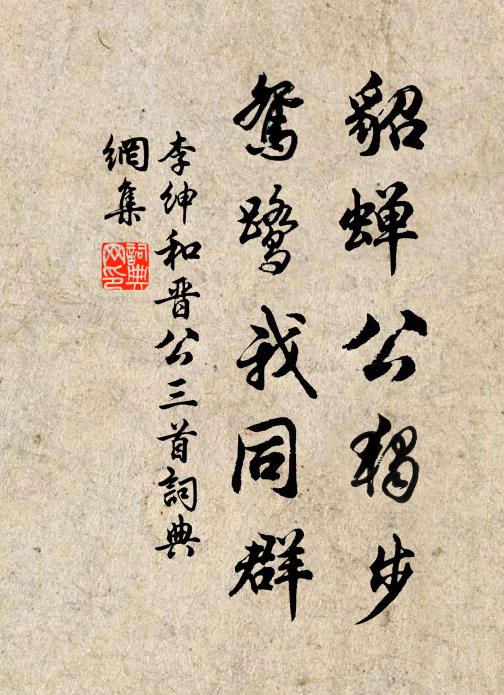 貂蟬公獨步
鴛鷺我同群
李紳和晋公三首詞典
網集
詞典网印